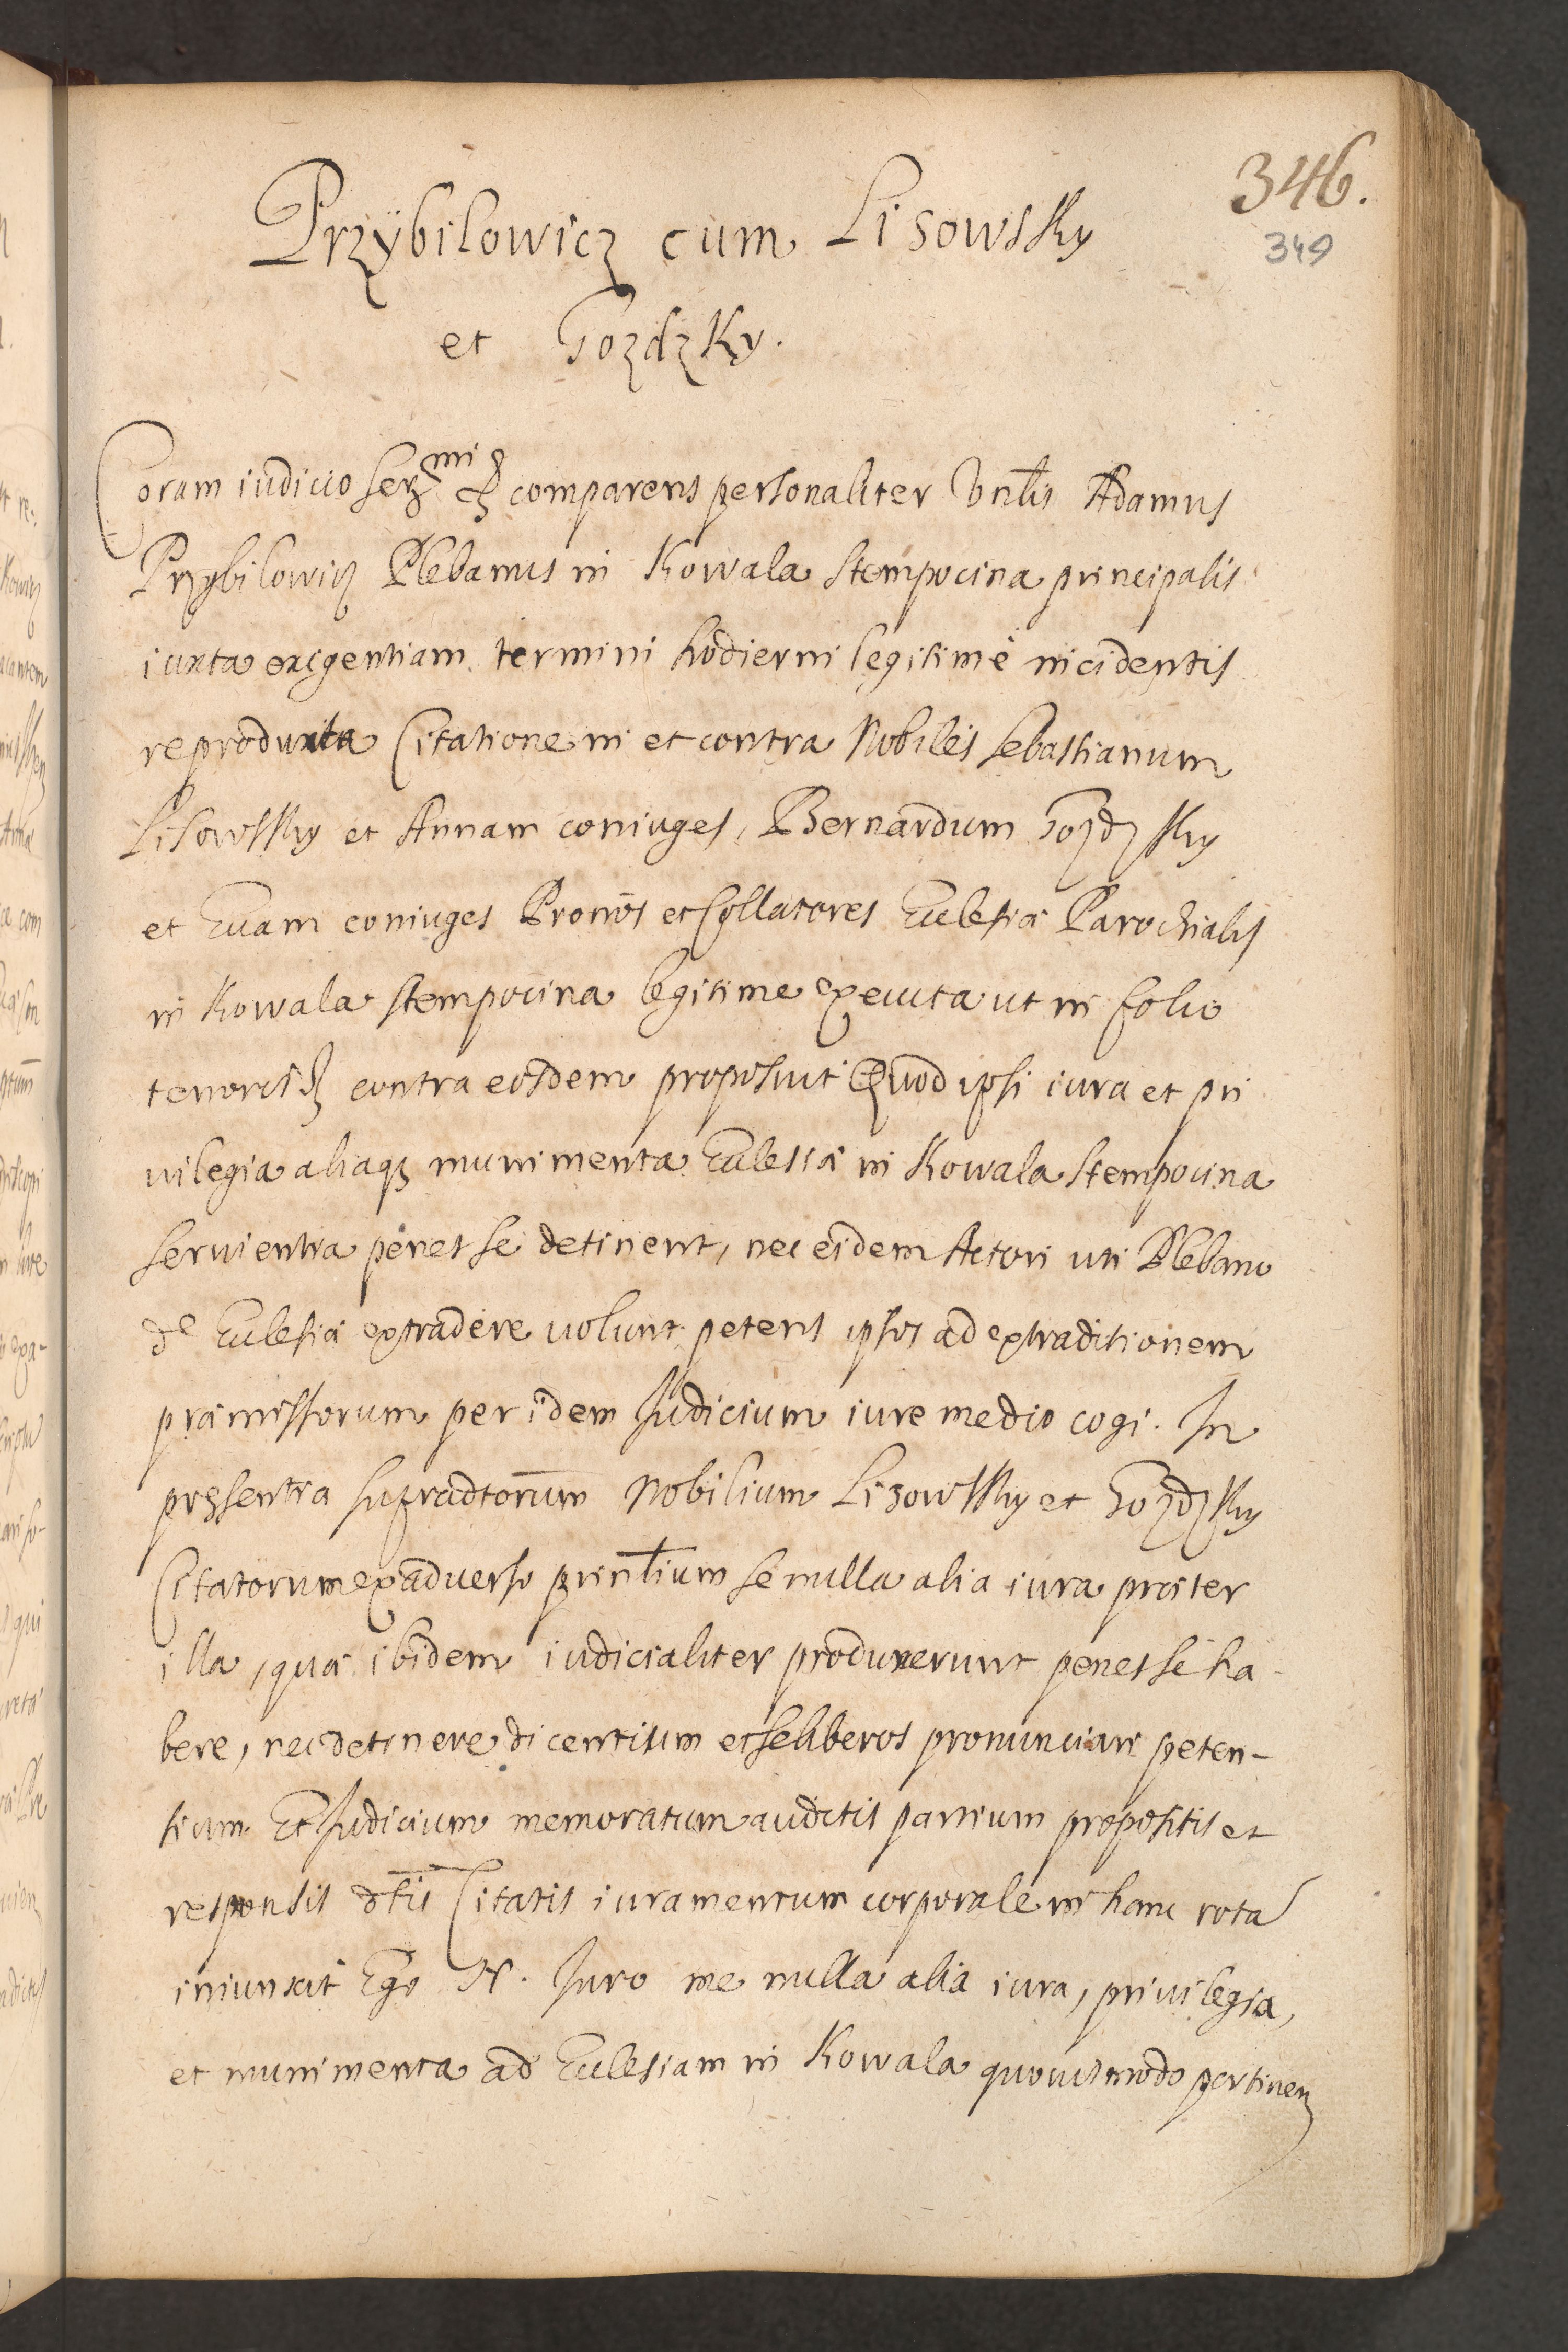 346.
349
Przÿbilowicz cum Lisowsky
et Gozdzky.
Coram iudicio comparens personaliter Vnlis Adamus
Przybilowicz Plebanus in Kowala Stempocina principalis
iuxta exigentiam termini hodierni legitimè incidentis
reproducta Citatione in et contra Nobiles Sebastianum
Lisowsky et Annam coniuges, Bernardum Gozdzky
et Euam coniuges et Collatores Ecclesiæ Parochialis
in Kowala Stempocina legitime executa ut in folio
tenoris contra eosdem proposuit Quod ipsi iura et pri
uilegia aliaq; munimenta Ecclesiæ in Kowala Stempocina
seruientia penes se detinent, nec eidem Actori uti Plebano
Ecclesiæ extradere uolunt petens ipsos ad extraditionem
præmissorum per idem Judicium iure medio cogi. In
pręsentia supradtorum Nobilium Lisowsky et Gozdzky
Citatorum ex aduerso prīntium se nulla alia iura præter
illa, quæ ibidem iudicialiter produxerunt penes se ha
bere, nec detinere dicentium et se liberos pronunciari peten-
tium Et Judicium memoratum auditis partium propositis et
responsis dtis Citatis iuramentum corporale in hanc rotā
iniunxit Ego N. Juro me nulla alia iura, priuilegia,
et munimenta ad Ecclesiam in Kowala quouismodo pertinen